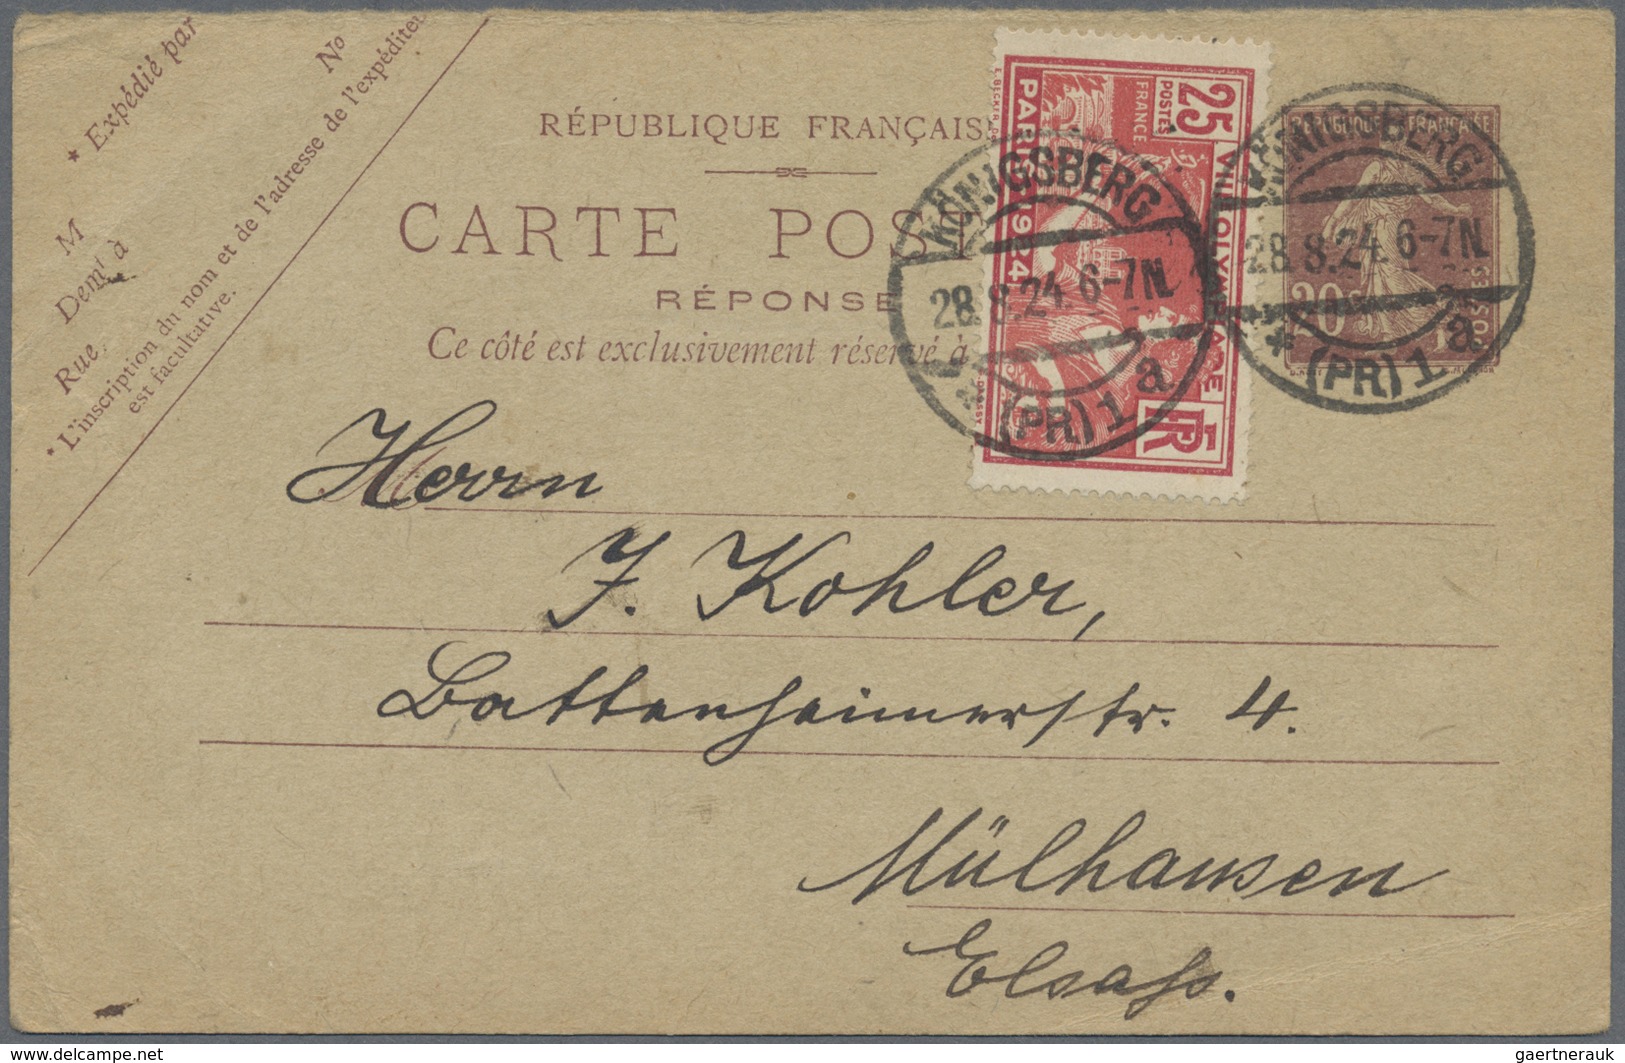 * Expédié par
M
Nº
Demt à
Rue
* L'inscription du nom et de l'adresse de l'expéditeur
est facultative.
RÉPUBLIQUE FRANÇAIS
CARTE POST
RÉPONSE
Ce côté est exclusivement réservé à
25
POSTES
FRANCE
VILLE OLYMPIQUE
PARIS 1924
RF
KÖNIGSBERG
28.8.24. 6-7N.
* (PR) 1 a
RÉPUBLIQUE FRANÇAISE
20
POSTES
KÖNIGSBERG
28.8.24. 6-7N.
* (PR) 1 a
Herrn
J. Kohler,
Battenheimerstr. 4.
Mülhausen
Elsaß.
www.delcampe.net
gaertnerauk